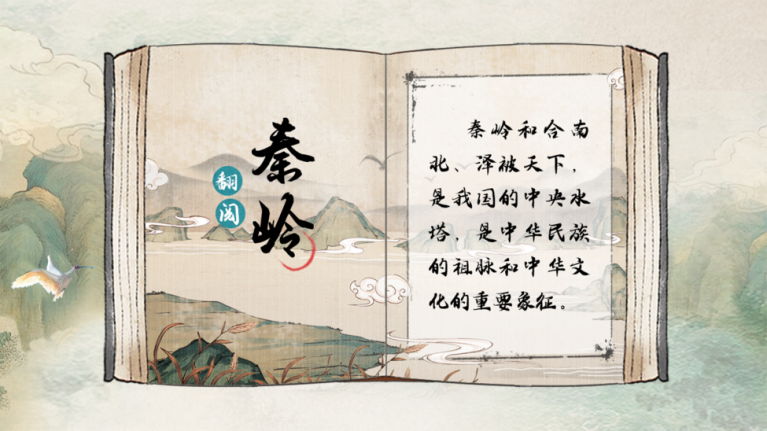 翻阅
秦岭
秦岭和合南
北、泽被天下，
是我国的中央水
塔，是中华民族
的祖脉和中华文
化的重要象征。